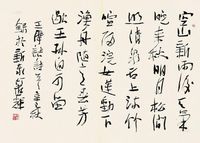 空山新雨後天氣
晚來秋明月松間
照清泉石上流竹
喧歸浣女蓮動下
漁舟隨意春芳
歇王孫自可留
王維詩